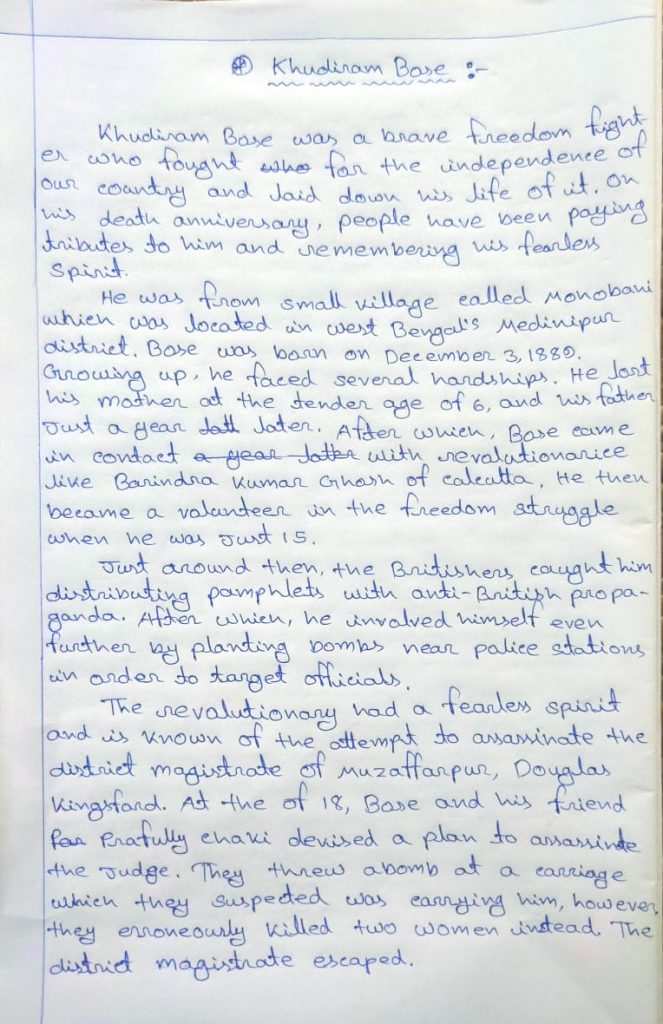 ⊕ Khudiram Bose :-
Khudiram Bose was a brave freedom fight-
er who fought who for the independence of
our country and laid down his life of it. On
his death anniversary, people have been paying
tributes to him and remembering his fearless
spirit.
He was from small village called Mohobani
which was located in west Bengal's Medinipur
district. Bose was born on December 3, 1889.
Growing up, he faced several hardships. He lost
his mother at the tender age of 6, and his father
Just a year latt later. After which, Bose came
in contact a year latter with revolutionarice
like Barindra Kumar Ghosh of calcutta, He then
became a volunteer in the freedom struggle
when he was Just 15.
Just around then, the Britishers caught him
distributing pamphlets with anti-British propa-
ganda. After which, he involved himself even
further by planting bombs near police stations
in order to target officials.
The revolutionary had a fearless spirit
and is known of the attempt to assassinate the
district magistrate of Muzaffarpur, Douglas
Kingsford. At the of 18, Bose and his friend
for Prafully chaki devised a plan to assassinte
the Judge. They threw abomb at a carriage
which they suspected was carrying him, however,
they erroneously killed two women instead. The
district magistrate escaped.